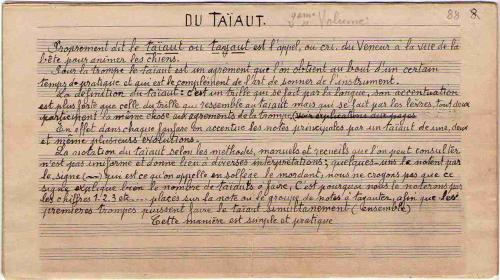 DU TAÏAUT.
2ème Volume
88 8.
Proprement dit le taïaut ou tayaut est l'appel, ou cri, du Veneur à la vue de la
bête pour animer les chiens.
Pour la trompe le taïaut est un agrément que l'on obtient au bout d'un certain
temps de pratique et qui est le complément de l'art de sonner de l'instrument.
La définition du taïaut: c'est un trille qui se fait par la langue, son accentuation
est plus forte que celle du trille qui ressemble au taïaut mais qui se fait par les lèvres, tout deux
participent la même chose aux agréments de la trompe, (voir explications aux pages
En effet dans chaque fanfare on accentue les notes principales par un taïaut de une, deux
et même plusieurs
La notation du taïaut selon les méthodes, manuels et recueils que l'on peut consulter
n'est pas uniforme et donne lieu à diverses interprétations; quelques-uns le notent par
le signe (~~) qui est ce qu'on appelle en solfège le mordant; nous ne croyons pas que ce
signe explique bien le nombre de taïauts à faire, C'est pourquoi nous le noterons par
les chiffres 1-2-3 etc..... placés sur la note ou le groupe de notes à tayauter, afin que les
premières trompes puissent faire le taïaut simultanément (d'ensemble)
Cette manière est simple et pratique